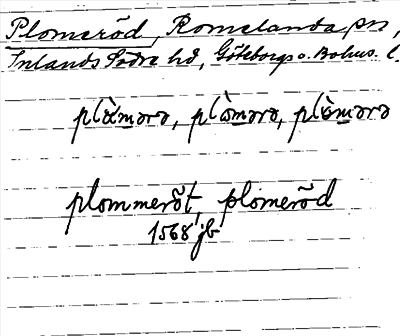 Plomeröd, Romelanda sn,
Inlands Södra hd, Göteborgs o. Bohus. l.
plòmərə, plòmərə, plòmərə
plommeröt, plomeröd
1568 jb